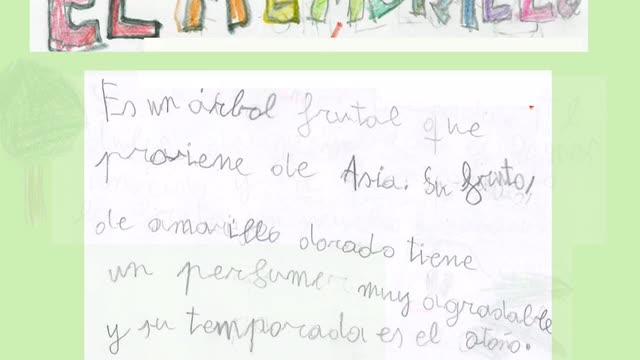 EL MEMBRILLO
Es un árbol frutal que
proviene de Asia. Su fruto,
de amarillo dorado tiene
un perfume muy agradable
y su temporada es el otoño.